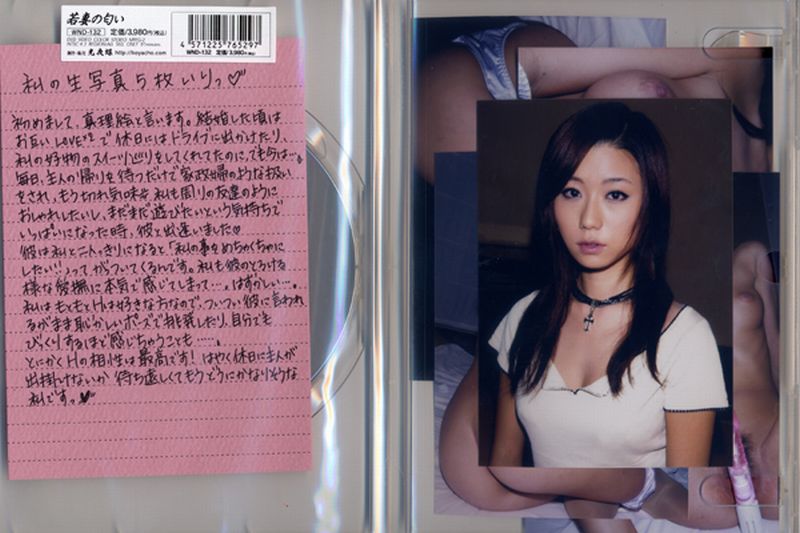 若妻の匂い
WND-132 定価/3,980円(税込)
http://koyacho.com
4 571225 765297
WND-132 定価/3,980円(税込)
私の生写真5枚いりっ♡
初めまして、真理絵と言います。結婚した頃は
お互いLOVE²で休日には、ドライブに出かけたり、
私の好物のスイーツ巡りをしてくれてたのに、でも今は…。
毎日、主人の帰りを待つだけで家政婦のような扱い
をされ、もう切れ気味。私も周りの友達のように
おしゃれしたいし、まだまだ遊びたいという気持ちで
いっぱいになった時、彼と出逢いました♡
彼は私と二人っきりになると「私の事をめちゃくちゃに
したい!!」ってがっついてくるんです。私も彼のとろける
様な愛撫に本気で感じてしまって…。はずかしい…。
私はもともとHは好きな方なので、ついつい彼に言われ
るがまま恥かしいポーズで挑発したり、自分でも
びっくりするほど感じちゃうことも……。
とにかくHの相性は最高です!はやく休日に主人が
出掛けないか待ち遠しくてもうどうにかなりそうな
私です。♥